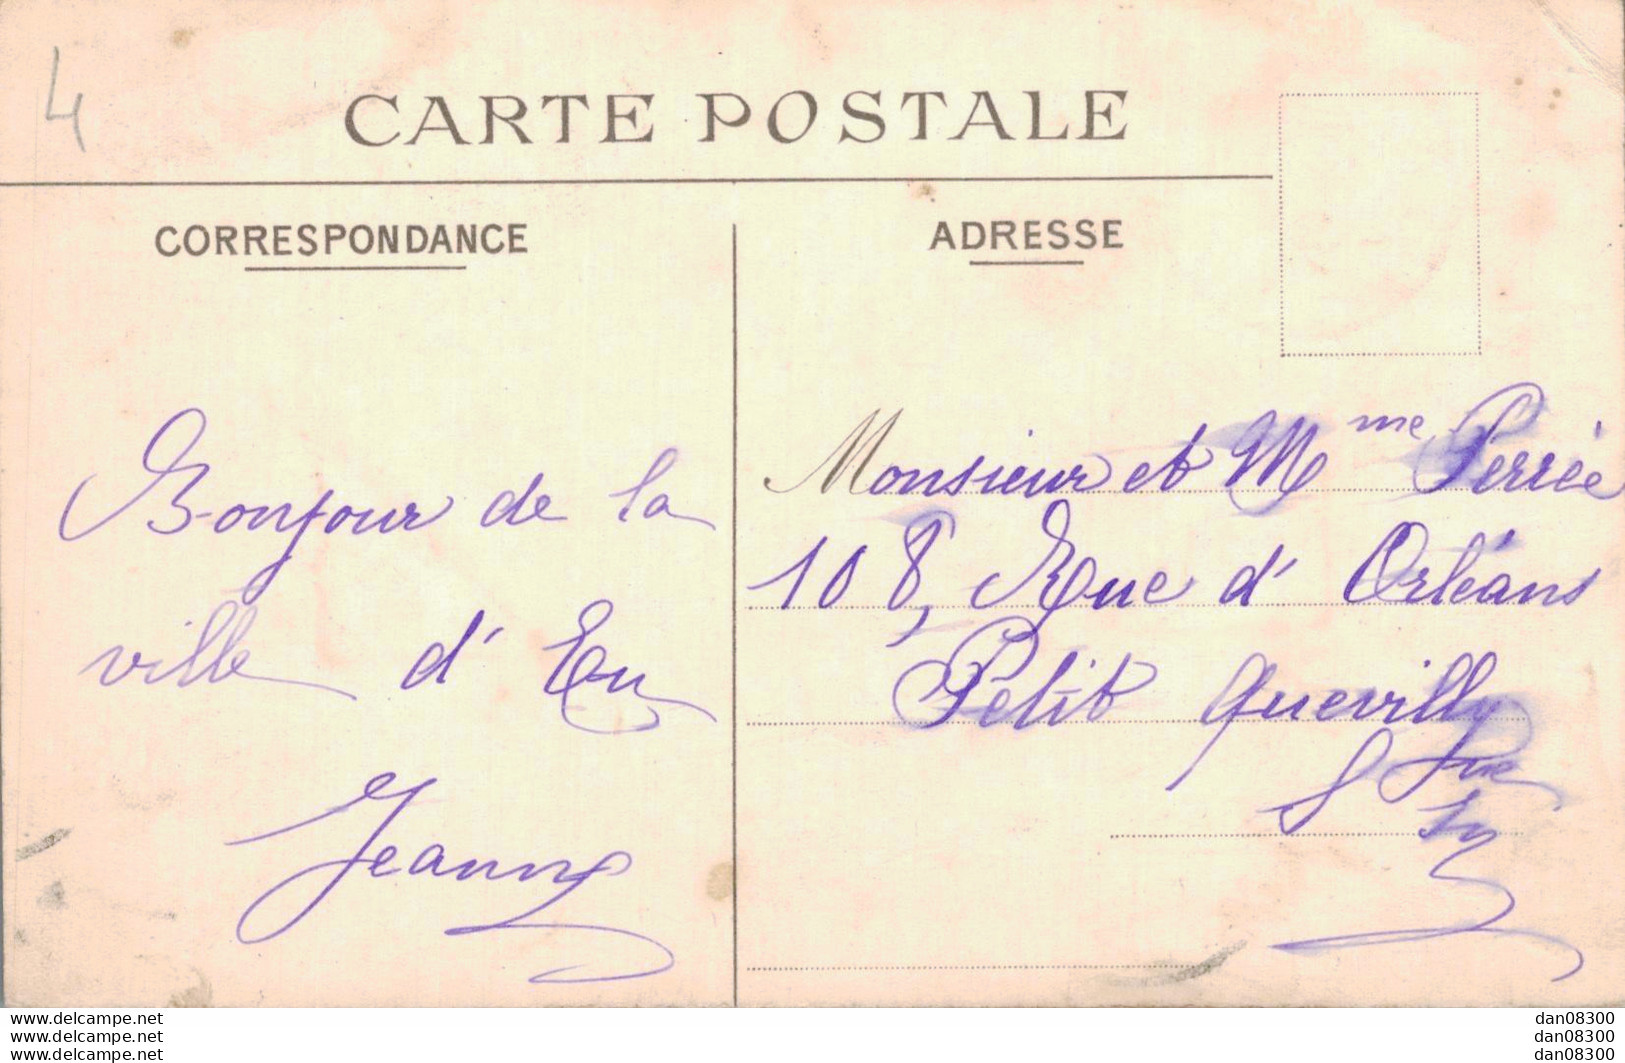 4
CARTE POSTALE
CORRESPONDANCE
ADRESSE
Bonjour de la
ville d'Eu
Jeanne
Monsieur et Mme Perrée
108, Rue d'Orléans
Petit Quevilly
S
www.delcampe.net
www.delcampe.net
www.delcampe.net
dan08300
dan08300
dan08300